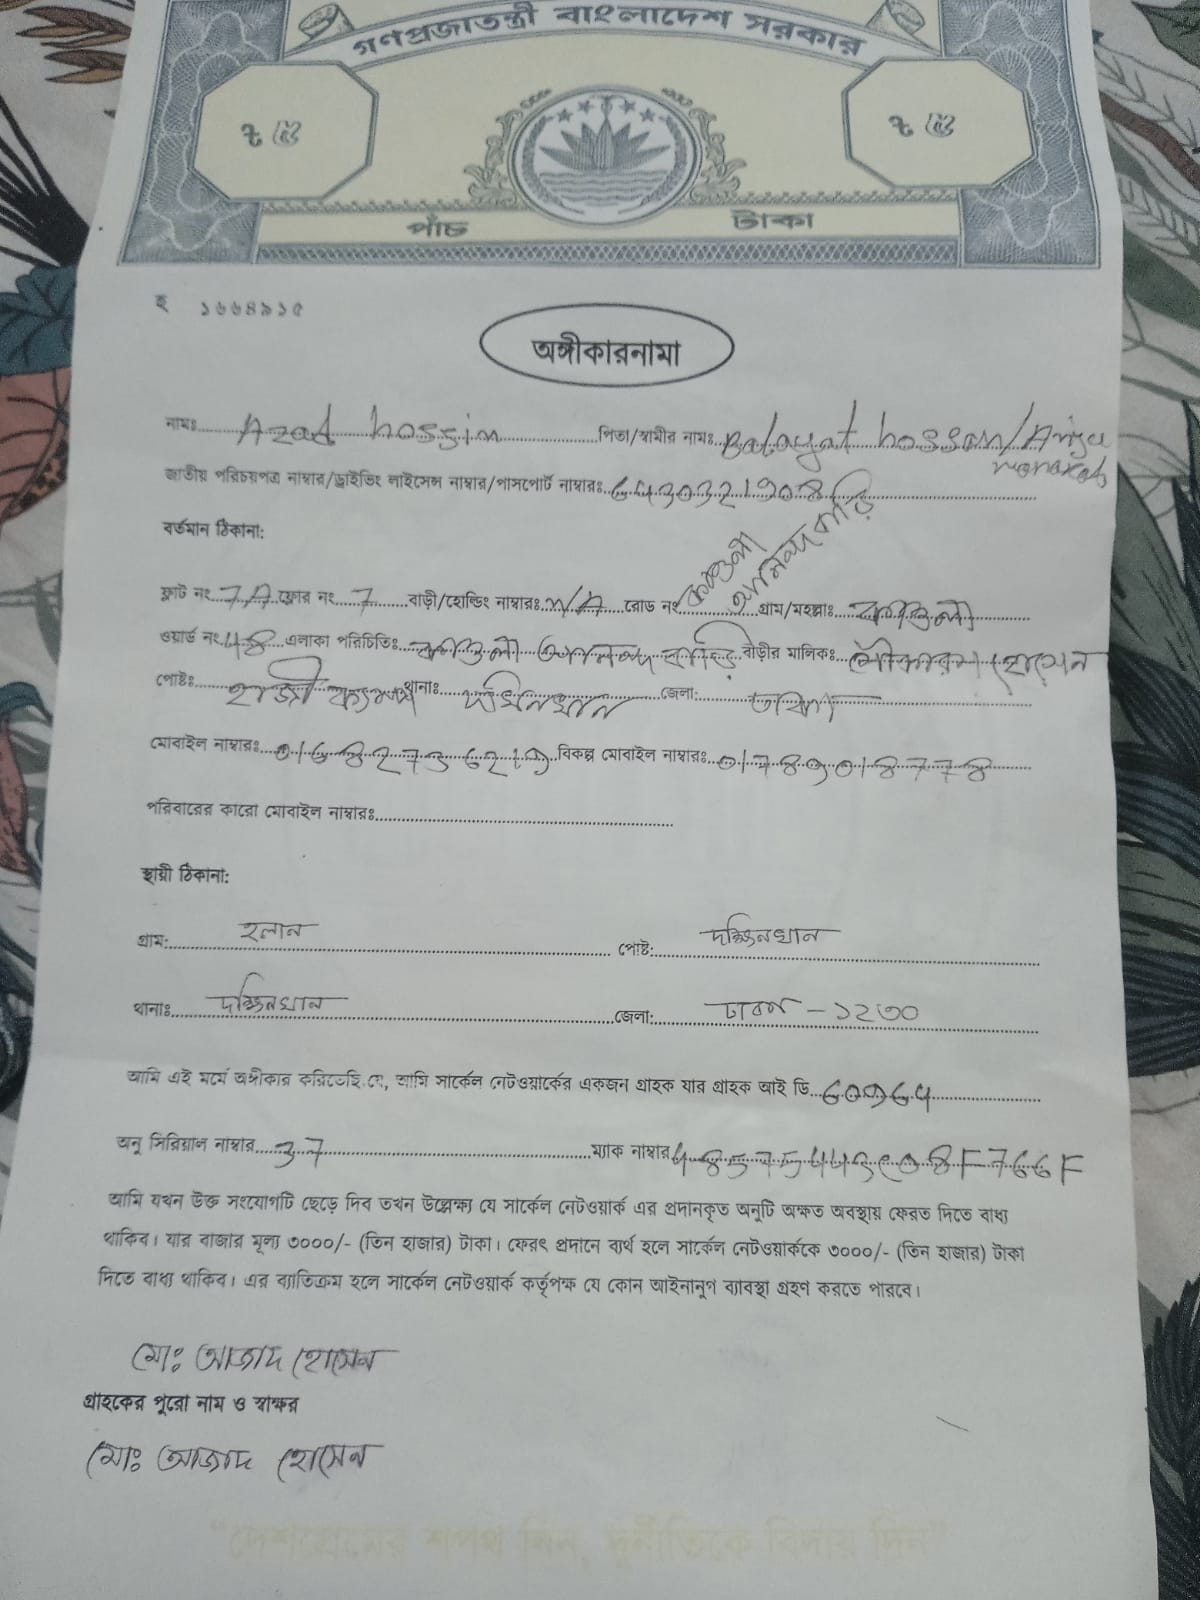 গণপ্রজাতন্ত্রী বাংলাদেশ সরকার
৳ ৫ ৳ ৫
পাঁচ টাকা
হ ১৬৬৪৯১৫
অঙ্গীকারনামা
নামঃ Azad hossin পিতা/স্বামীর নামঃ Balayat hossan/
জাতীয় পরিচয়পত্র নাম্বার/ড্রাইভিং লাইসেন্স নাম্বার/পাসপোর্ট নাম্বারঃ 6430321908
বর্তমান ঠিকানা:
ফ্লাট নং 7A ফ্লোর নং 7 বাড়ী/হোল্ডিং নাম্বারঃ N/A রোড নং গ্রাম/মহল্লাঃ
ওয়ার্ড নং 48 এলাকা পরিচিতিঃ বাড়ীর মালিকঃ হোসেন
পোষ্টঃ হাজী থানাঃ জেলা:
মোবাইল নাম্বারঃ বিকল্প মোবাইল নাম্বারঃ
পরিবারের কারো মোবাইল নাম্বারঃ
স্থায়ী ঠিকানা:
গ্রাম: হলান পোষ্ট: দক্ষিনখান
থানাঃ দক্ষিনখান জেলা: ঢাকা - ১২৩০
আমি এই মর্মে অঙ্গীকার করিতেছি যে, আমি সার্কেল নেটওয়ার্কের একজন গ্রাহক যার গ্রাহক আই ডি 60964
অনু সিরিয়াল নাম্বার 37 ম্যাক নাম্বার
আমি যখন উক্ত সংযোগটি ছেড়ে দিব তখন উল্লেক্ষ্য যে সার্কেল নেটওয়ার্ক এর প্রদানকৃত অনুটি অক্ষত অবস্থায় ফেরত দিতে বাধ্য
থাকিব। যার বাজার মূল্য ৩০০০/- (তিন হাজার) টাকা। ফেরৎ প্রদানে ব্যর্থ হলে সার্কেল নেটওয়ার্ককে ৩০০০/- (তিন হাজার) টাকা
দিতে বাধ্য থাকিব। এর ব্যাতিক্রম হলে সার্কেল নেটওয়ার্ক কর্তৃপক্ষ যে কোন আইনানুগ ব্যাবস্থা গ্রহণ করতে পারবে।
মোঃ আজাদ হোসেন
গ্রাহকের পুরো নাম ও স্বাক্ষর
মোঃ আজাদ হোসেন
"দেশপ্রেমের শপথ নিন, দুর্নীতিকে বিদায় দিন"